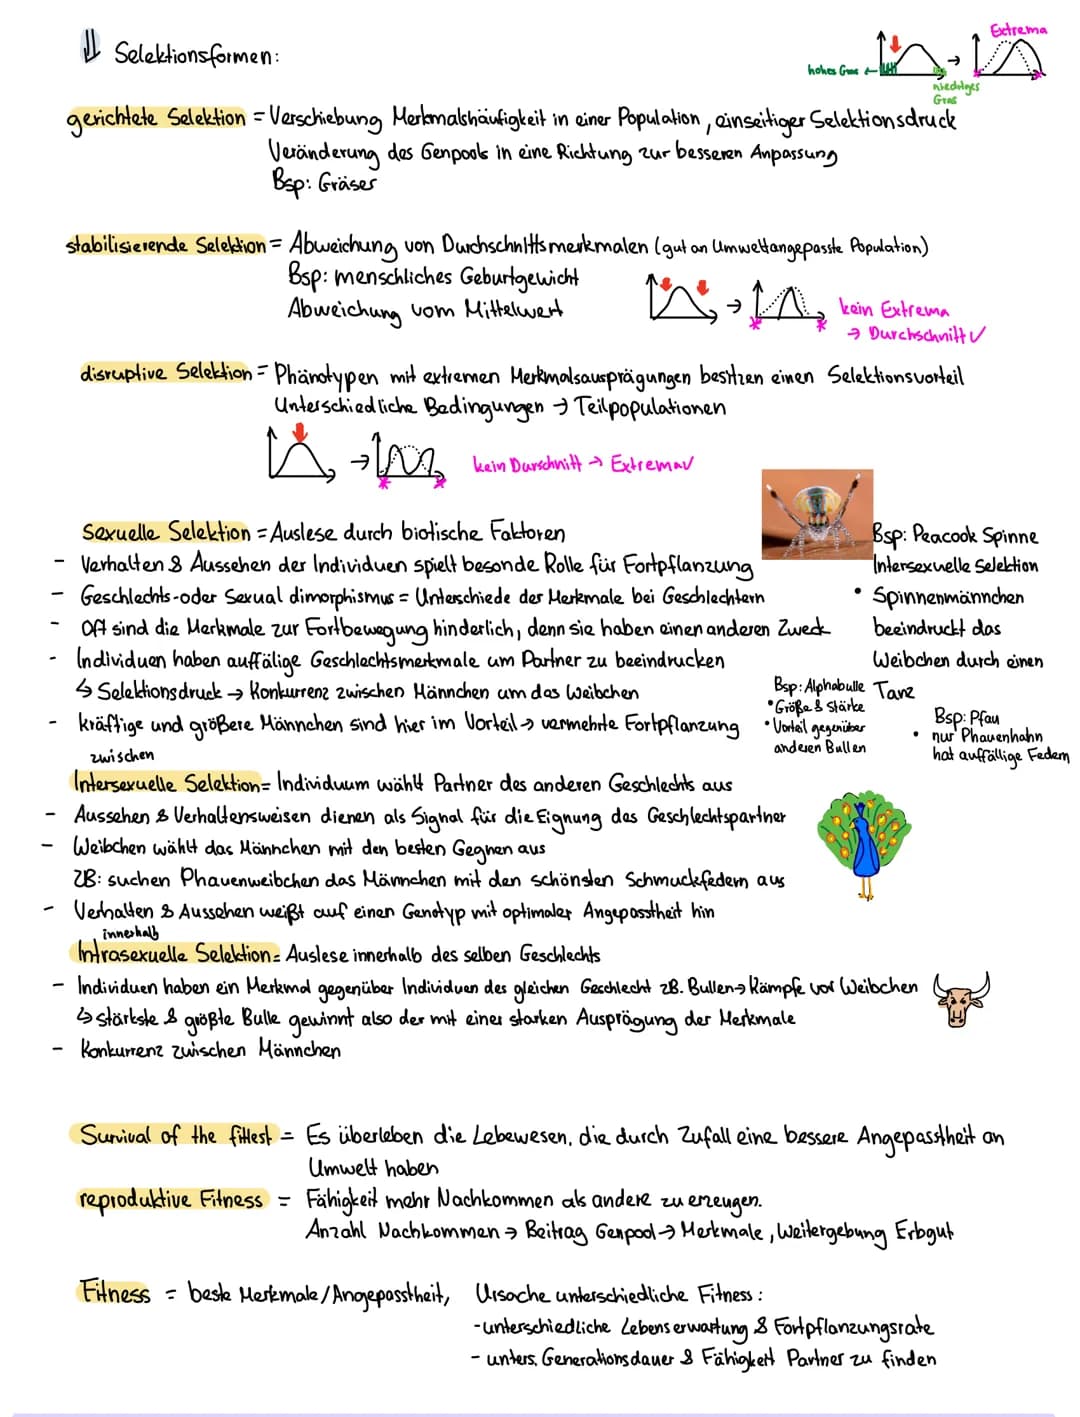 Selektionsformen:
Extrema
hohes Gras
niedriges
Gras
gerichtete Selektion = Verschiebung Merkmalshäufigkeit in einer Population, einseitiger Selektionsdruck
Veränderung des Genpools in eine Richtung zur besseren Anpassung
Bsp: Gräser
stabilisierende Selektion = Abweichung von Durchschnittsmerkmalen (gut an Umwelt angepasste Population)
Bsp: menschliches Geburtgewicht
Abweichung vom Mittelwert
kein Extrema
→ Durchschnitt ✓
disruptive Selektion = Phänotypen mit extremen Merkmalsausprägungen besitzen einen Selektionsvorteil
Unterschiedliche Bedingungen → Teilpopulationen
kein Durschnitt → Extrema ✓
Sexuelle Selektion = Auslese durch biotische Faktoren
- Verhalten & Aussehen der Individuen spielt besonde Rolle für Fortpflanzung
- Geschlechts- oder Sexual dimorphismus = Unterschiede der Merkmale bei Geschlechtern
- Oft sind die Merkmale zur Fortbewegung hinderlich, denn sie haben einen anderen Zweck
- Individuen haben auffälige Geschlechtsmerkmale um Partner zu beeindrucken
↳ Selektionsdruck → Konkurrenz zwischen Männchen um das Weibchen
- kräftige und größere Männchen sind hier im Vorteil → vermehrte Fortpflanzung
Bsp: Peacook Spinne
Intersexuelle Selektion
• Spinnenmännchen
beeindruckt das
Weibchen durch einen
Tanz
Bsp: Alphabulle
• Größe & Stärke
• Vorteil gegenüber
anderen Bullen
Bsp: Pfau
• nur Phauenhahn
hat auffällige Federn
zwischen
Intersexuelle Selektion = Individuum wählt Partner des anderen Geschlechts aus
- Aussehen & Verhaltensweisen dienen als Signal für die Eignung des Geschlechtspartner
- Weibchen wählt das Männchen mit den besten Gegnen aus
ZB: suchen Phauenweibchen das Männchen mit den schönsten Schmuckfedern aus
- Verhalten & Aussehen weißt auf einen Genotyp mit optimaler Angepasstheit hin
innerhalb
Intrasexuelle Selektion = Auslese innerhalb des selben Geschlechts
- Individuen haben ein Merkmal gegenüber Individuen des gleichen Geschlecht zB. Bullen → Kämpfe vor Weibchen
↳ stärkste & größte Bulle gewinnt also der mit einer starken Ausprägung der Merkmale
- Konkurrenz zwischen Männchen
Survival of the fittest = Es überleben die Lebewesen, die durch Zufall eine bessere Angepasstheit an
Umwelt haben
reproduktive Fitness = Fähigkeit mehr Nachkommen als andere zu erzeugen.
Anzahl Nachkommen → Beitrag Genpool → Merkmale, Weitergebung Erbgut
Fitness = beste Merkmale/Angepasstheit, Ursache unterschiedliche Fitness:
- unterschiedliche Lebenserwartung & Fortpflanzungsrate
- unters. Generationsdauer & Fähigkeit Partner zu finden